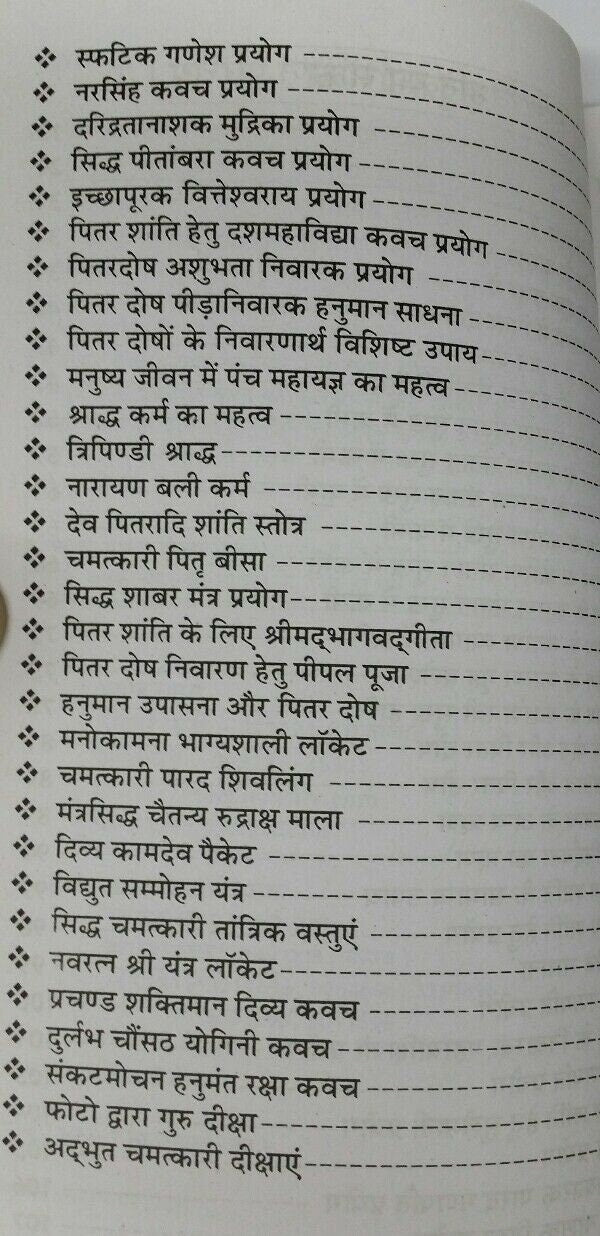 ❖ स्फटिक गणेश प्रयोग
❖ नरसिंह कवच प्रयोग
❖ दरिद्रतानाशक मुद्रिका प्रयोग
❖ सिद्ध पीतांबरा कवच प्रयोग
❖ इच्छापूरक वित्तेश्वराय प्रयोग
❖ पितर शांति हेतु दशमहाविद्या कवच प्रयोग
❖ पितरदोष अशुभता निवारक प्रयोग
❖ पितर दोष पीड़ानिवारक हनुमान साधना
❖ पितर दोषों के निवारणार्थ विशिष्ट उपाय
❖ मनुष्य जीवन में पंच महायज्ञ का महत्व
❖ श्राद्ध कर्म का महत्व
❖ त्रिपिण्डी श्राद्ध
❖ नारायण बली कर्म
❖ देव पितरादि शांति स्तोत्र
❖ चमत्कारी पितृ बीसा
❖ सिद्ध शाबर मंत्र प्रयोग
❖ पितर शांति के लिए श्रीमद्‌भागवद्‌गीता
❖ पितर दोष निवारण हेतु पीपल पूजा
❖ हनुमान उपासना और पितर दोष
❖ मनोकामना भाग्यशाली लॉकेट
❖ चमत्कारी पारद शिवलिंग
❖ मंत्रसिद्ध चैतन्य रुद्राक्ष माला
❖ दिव्य कामदेव पैकेट
❖ विद्युत सम्मोहन यंत्र
❖ सिद्ध चमत्कारी तांत्रिक वस्तुएं
❖ नवरत्न श्री यंत्र लॉकेट
❖ प्रचण्ड शक्तिमान दिव्य कवच
❖ दुर्लभ चौंसठ योगिनी कवच
❖ संकटमोचन हनुमंत रक्षा कवच
❖ फोटो द्वारा गुरु दीक्षा
❖ अद्‌भुत चमत्कारी दीक्षाएं